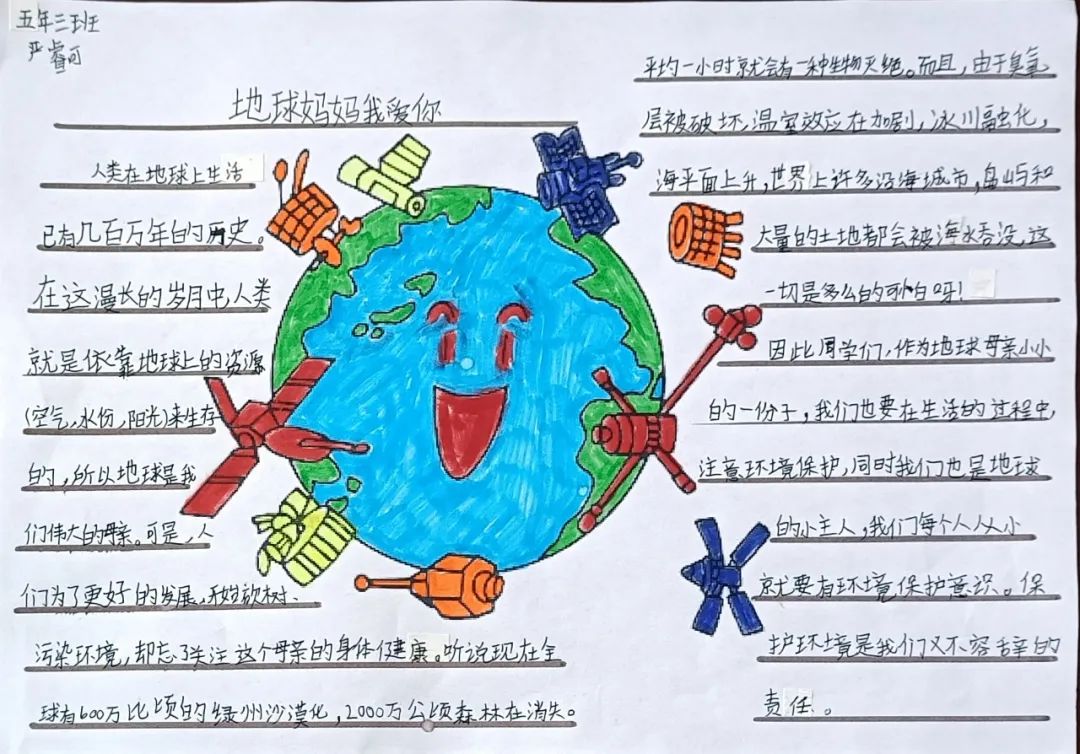 五年三班
严睿可
地球妈妈我爱你
人类在地球上生活
已有几百万年的历史。
在这漫长的岁月中,人类
就是依靠地球上的资源
(空气,水份,阳光)来生存
的,所以地球是我
们伟大的母亲。可是,人
们为了更好的发展,开始砍树、
污染环境,却忘了关注这个母亲的身体健康。听说现在全
球有600万公顷的绿州沙漠化,2000万公顷森林在消失。
平均一小时就会有一种生物灭绝。而且,由于臭氧
层被破坏,温室效应在加剧,冰川融化,
海平面上升,世界上许多沿海城市,岛屿和
大量的土地都会被海水吞没,这
一切是多么的可怕呀!
因此同学们,作为地球母亲小小
的一份子,我们也要在生活的过程中,
注意环境保护,同时我们也是地球
的小主人,我们每个人从小
就要有环境保护意识。保
护环境是我们义不容辞的
责任。